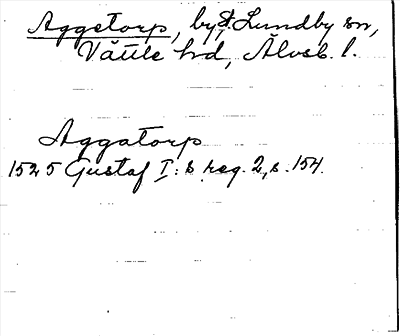 Aggetorp, by, St. Lundby sn,
Vättle hd, Älvsb. l.
Aggatorp
1525 Gustaf I:s reg. 2, s. 154.